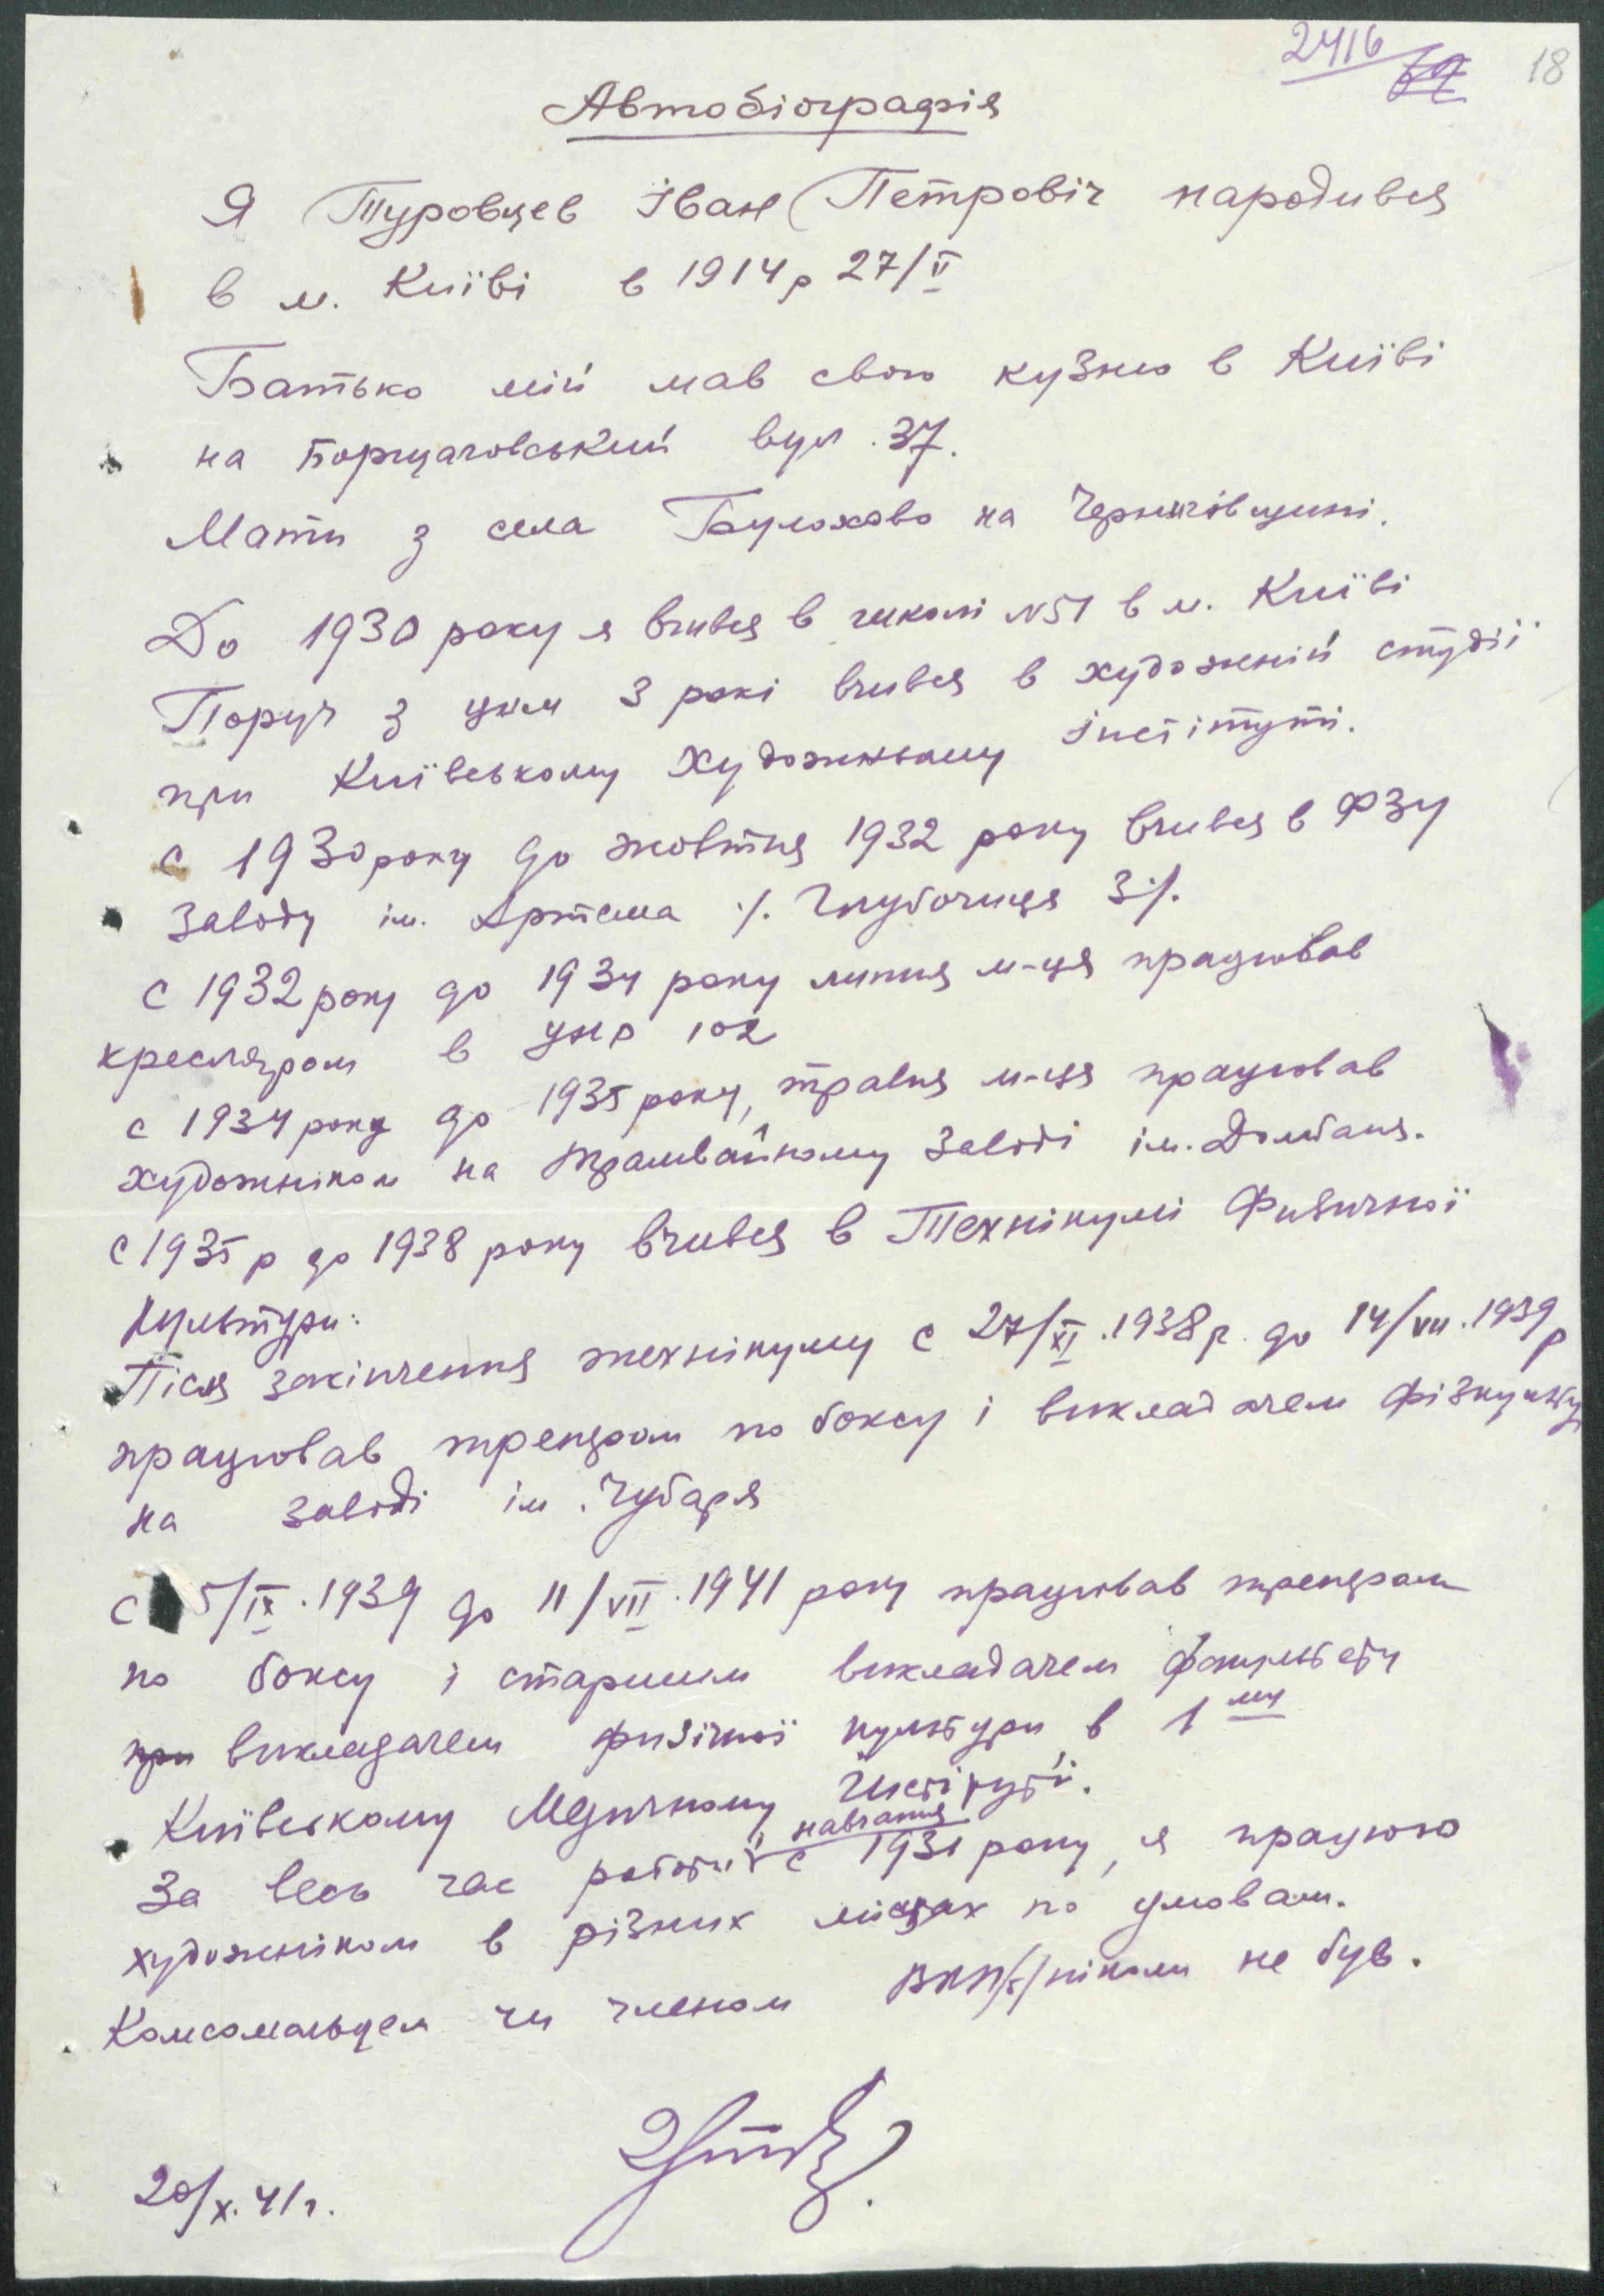 2416 18
Автобіографія
Я Туровцев Іван Петровіч народився
в м. Київі в 1914 р 27/II
Батько мій мав свою кузню в Київі
на Борщаговський вул. 37.
Мати з села Булохово на Чернігівщині.
До 1930 року я вчився в школі №51 в м. Київі
Поруч з цим 3 рокі вчився в художній студії
при Київському Художньому інстітуті.
с 1930 року до жовтня 1932 року вчився в ФЗУ
Заводу ім. Артема ./. Глубочиця 3./.
с 1932 року до 1934 року липня м-ця працював
кресляром в УНР 102
с 1934 року до 1935 року, травня м-ця працював
художніком на трамвайному Заводі ім. Домбаля.
с 1935 р до 1938 року вчився в Технікумі Физичної
Культури:
Після закінчення технікуму с 27/XI.1938 р. до 14/VII.1939 р
працював тренером по боксу і викладачем фізкульту
на заводі ім. Чубаря
с 5/IX.1939 до 11/VII.1941 року працював тренером
по боксу і старшим викладачем факультету
при викладачем физічної культури в 1му
Київському Медичному Інстітуті.
За весь час роботи і навчання с 1931 року, я працюю
художніком в різних місцях по умовам.
Комсомольцем чи членом ВКП/б/ ніколи не був.
20/X.41 г.